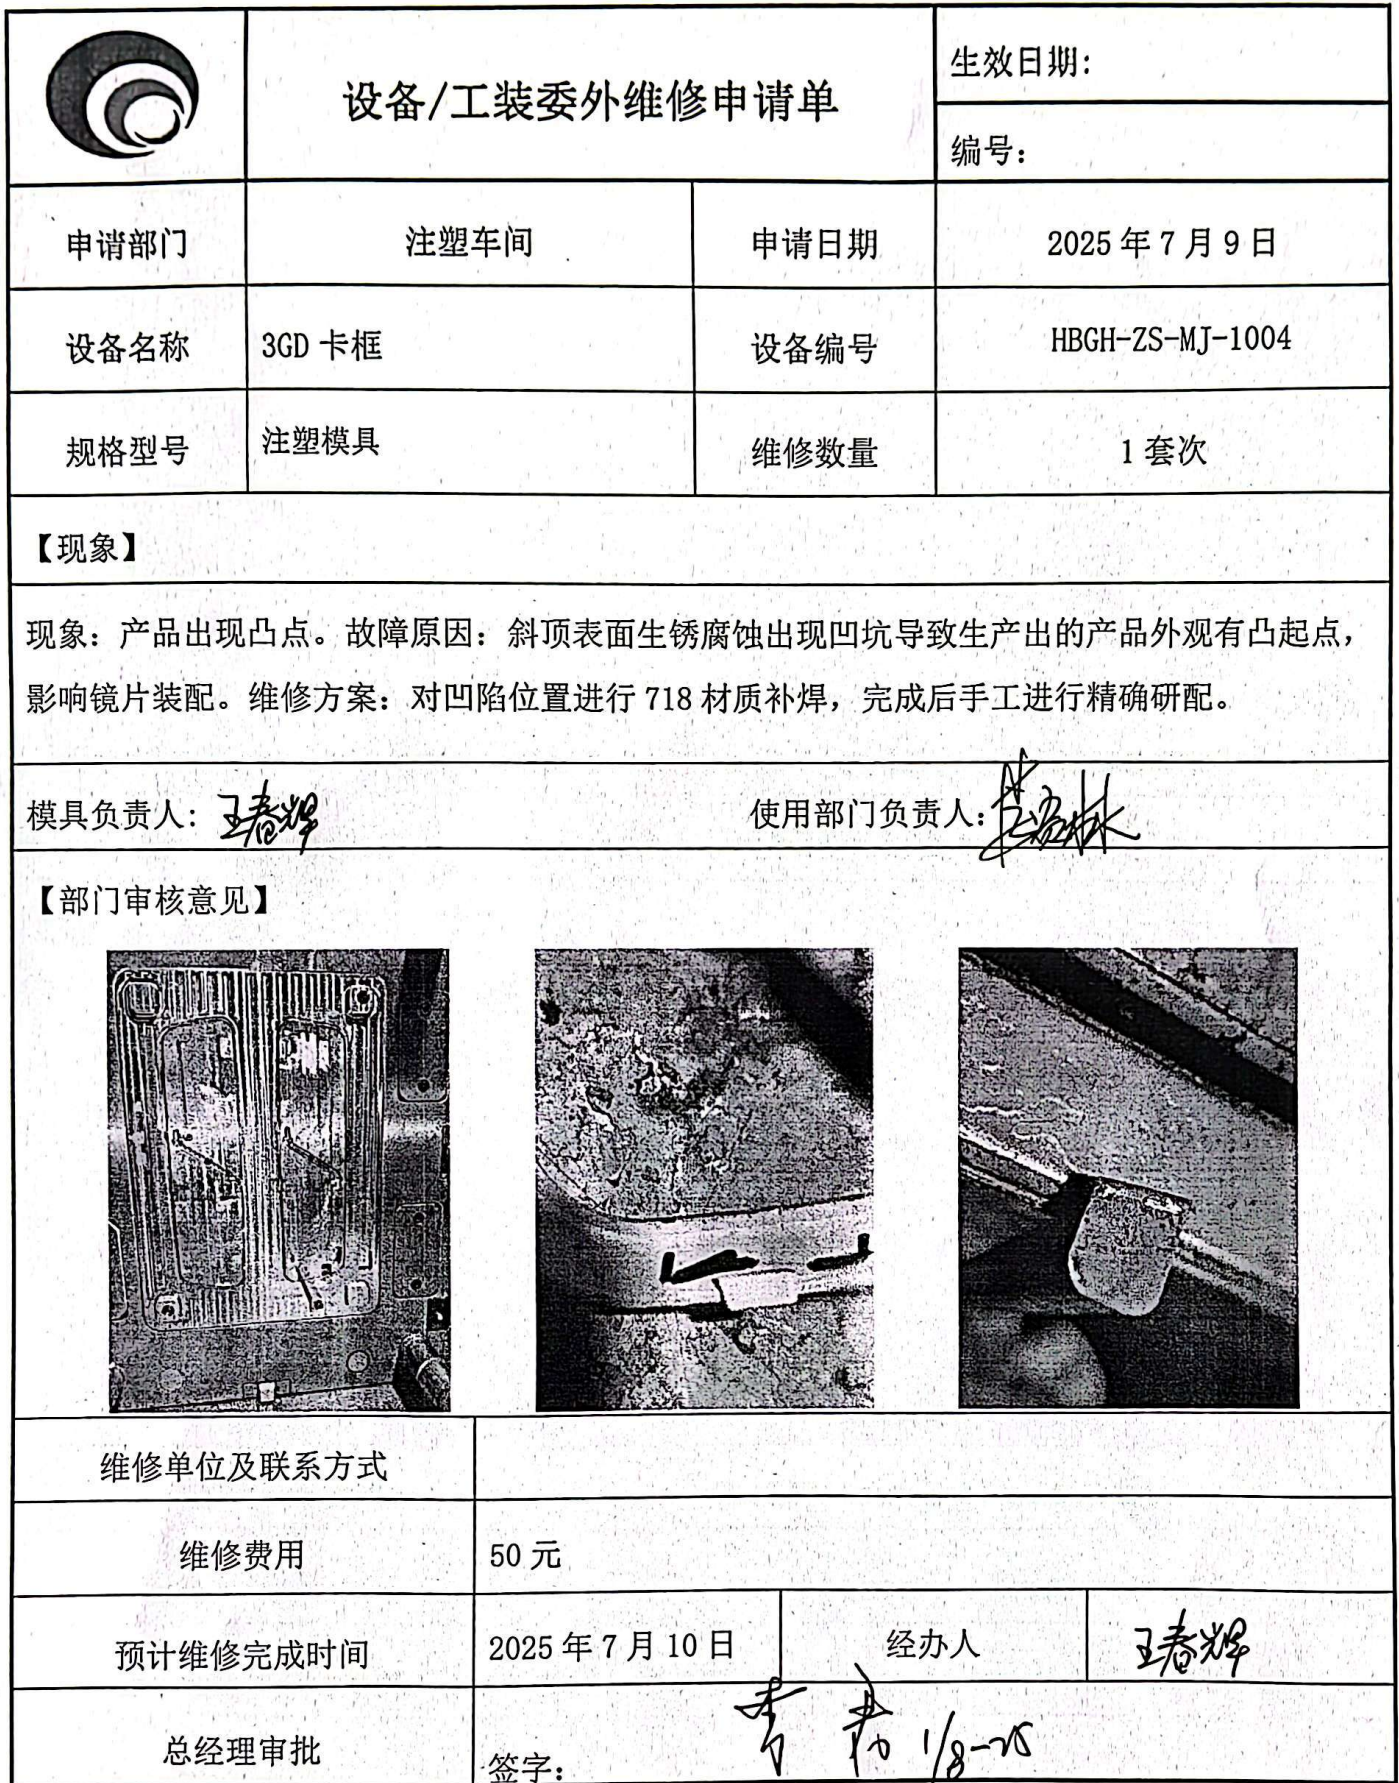 设备/工装委外维修申请单
生效日期:
编号:
申请部门 注塑车间 申请日期 2025年7月9日
设备名称 3GD卡框 设备编号 HBGH-ZS-MJ-1004
规格型号 注塑模具 维修数量 1套次
【现象】
现象：产品出现凸点。故障原因：斜顶表面生锈腐蚀出现凹坑导致生产出的产品外观有凸起点，
影响镜片装配。维修方案：对凹陷位置进行718材质补焊，完成后手工进行精确研配。
模具负责人：王春辉 使用部门负责人：
【部门审核意见】
维修单位及联系方式
维修费用 50元
预计维修完成时间 2025年7月10日 经办人 王春辉
总经理审批 签字： 1/8-25